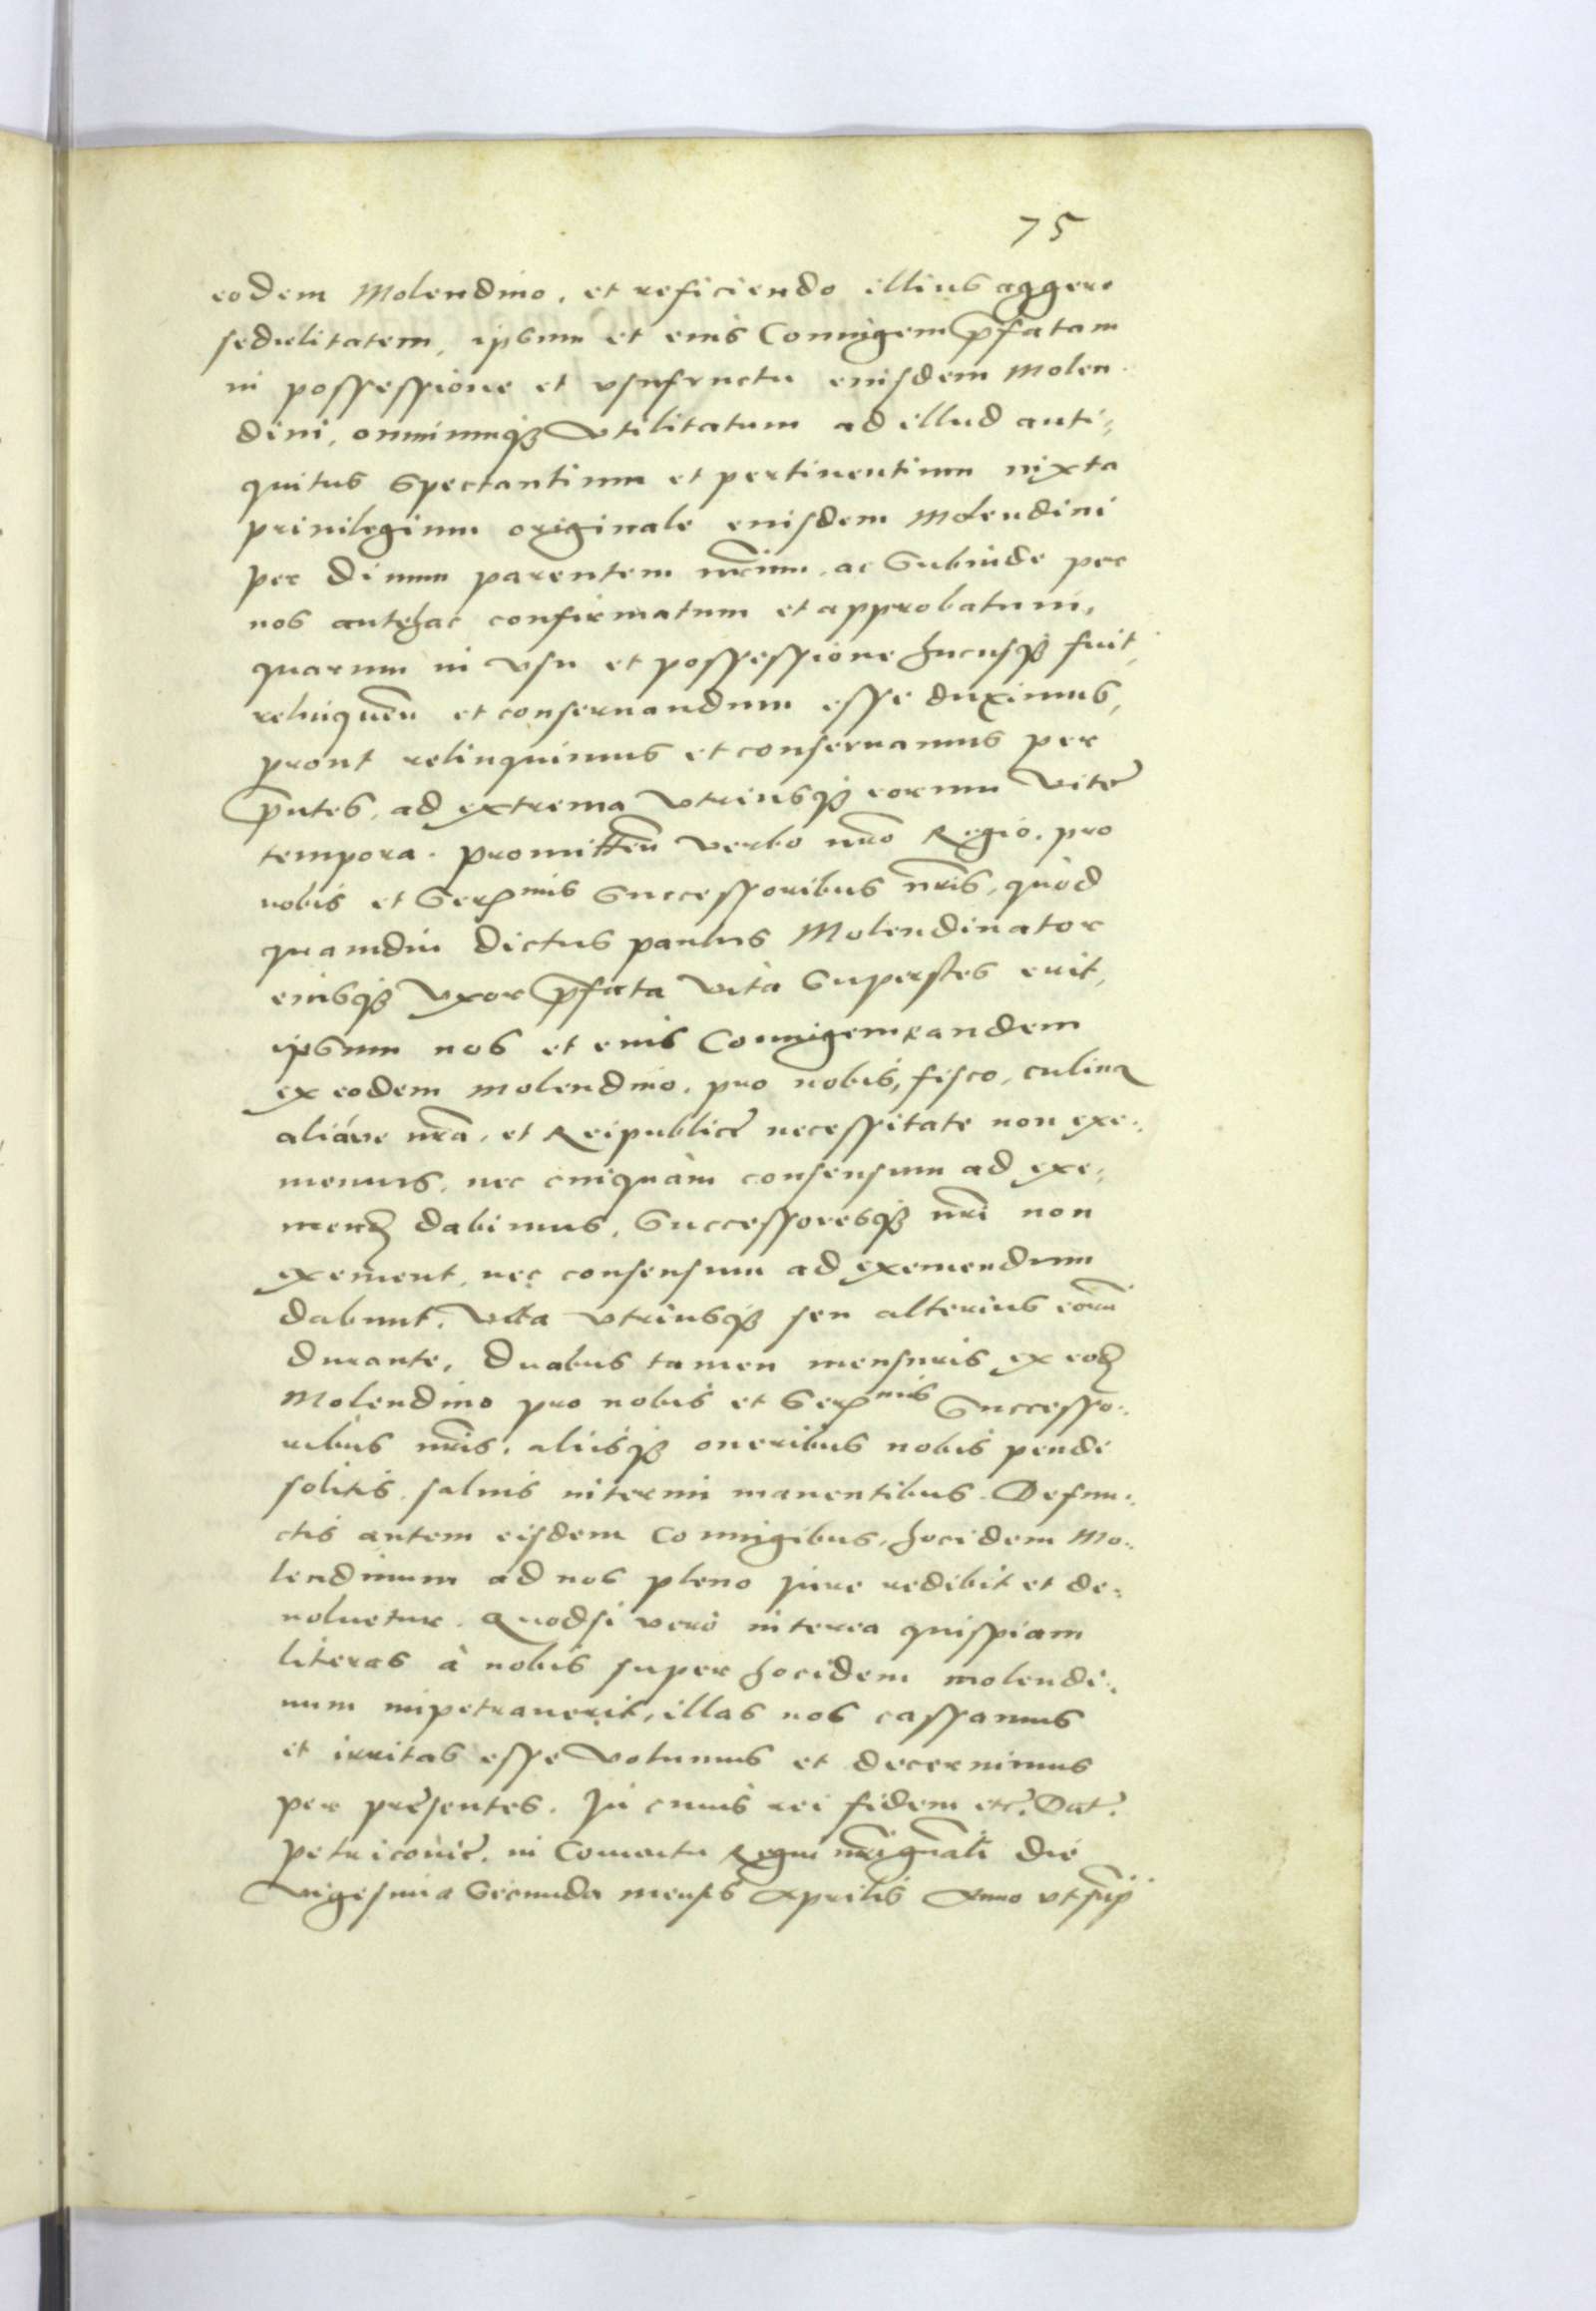 75
eodem Molendino, et reficiendo illius aggere
sedulitatem, ipsum et eius Coniugem p̄fatam
in possessione et vsufructu eiusdem Molen-
dini, omniumq₃ vtilitatum ad illud anti-
quitus spectantium et pertinentium iuxta
priuilegium originale eiusdem Molendini
per diuum parentem nr̄um, ac subinde per
nos antehac confirmatum et approbatum,
quarum in vsu et possessione hucusq₃ fuit,
relinquen̄ et conseruandum esse duximus,
prout relinquimus et conseruamus per
p̄ntes, ad extrema vtriusq₃ eorum vitę
tempora. Promitten̄ verbo nr̄o Regio, pro
nobis et Ser̄mis Successoribus nr̄is, quòd
quamdiu dictus paulus Molendinator
eiusq₃ vxor p̄fata vita superstes erit,
ipsum nos et eius Coniugem eandem
ex eodem molendino, pro nobis, fisco, culina
aliáve nr̄a, et Reipublicę necessitate non exe-
memus, nec cuiquàm consensum ad exe-
mend̄ dabimus, Successoresq₃ nr̄i non
exement, nec consensum ad exemendum
dabunt, vita vtriusq₃ seu alterius eorū
durante, duabus tamen mensuris ex eod̄
Molendino pro nobis et Ser̄mis Successo-
ribus nr̄is, aliisq₃ oneribus nobis pendi
solitis, saluis interim manentibus. Defun-
ctis autem eisdem Coniugibus, hocidem Mo-
lendinum ad nos pleno iure redibit et de-
uoluetur. Quodsi verò interea quispiam
literas à nobis super hocidem molendi-
num impetrauerit, illas nos cassamus
et irritas esse volumus et decernimus
per pręsentes. In cuius rei fidem etc̄. Dat̄.
Petricouię, in Conuentu Regni nr̄i gn̄ali die
vigesima secunda mensis Aprilis Anno vt sup̄